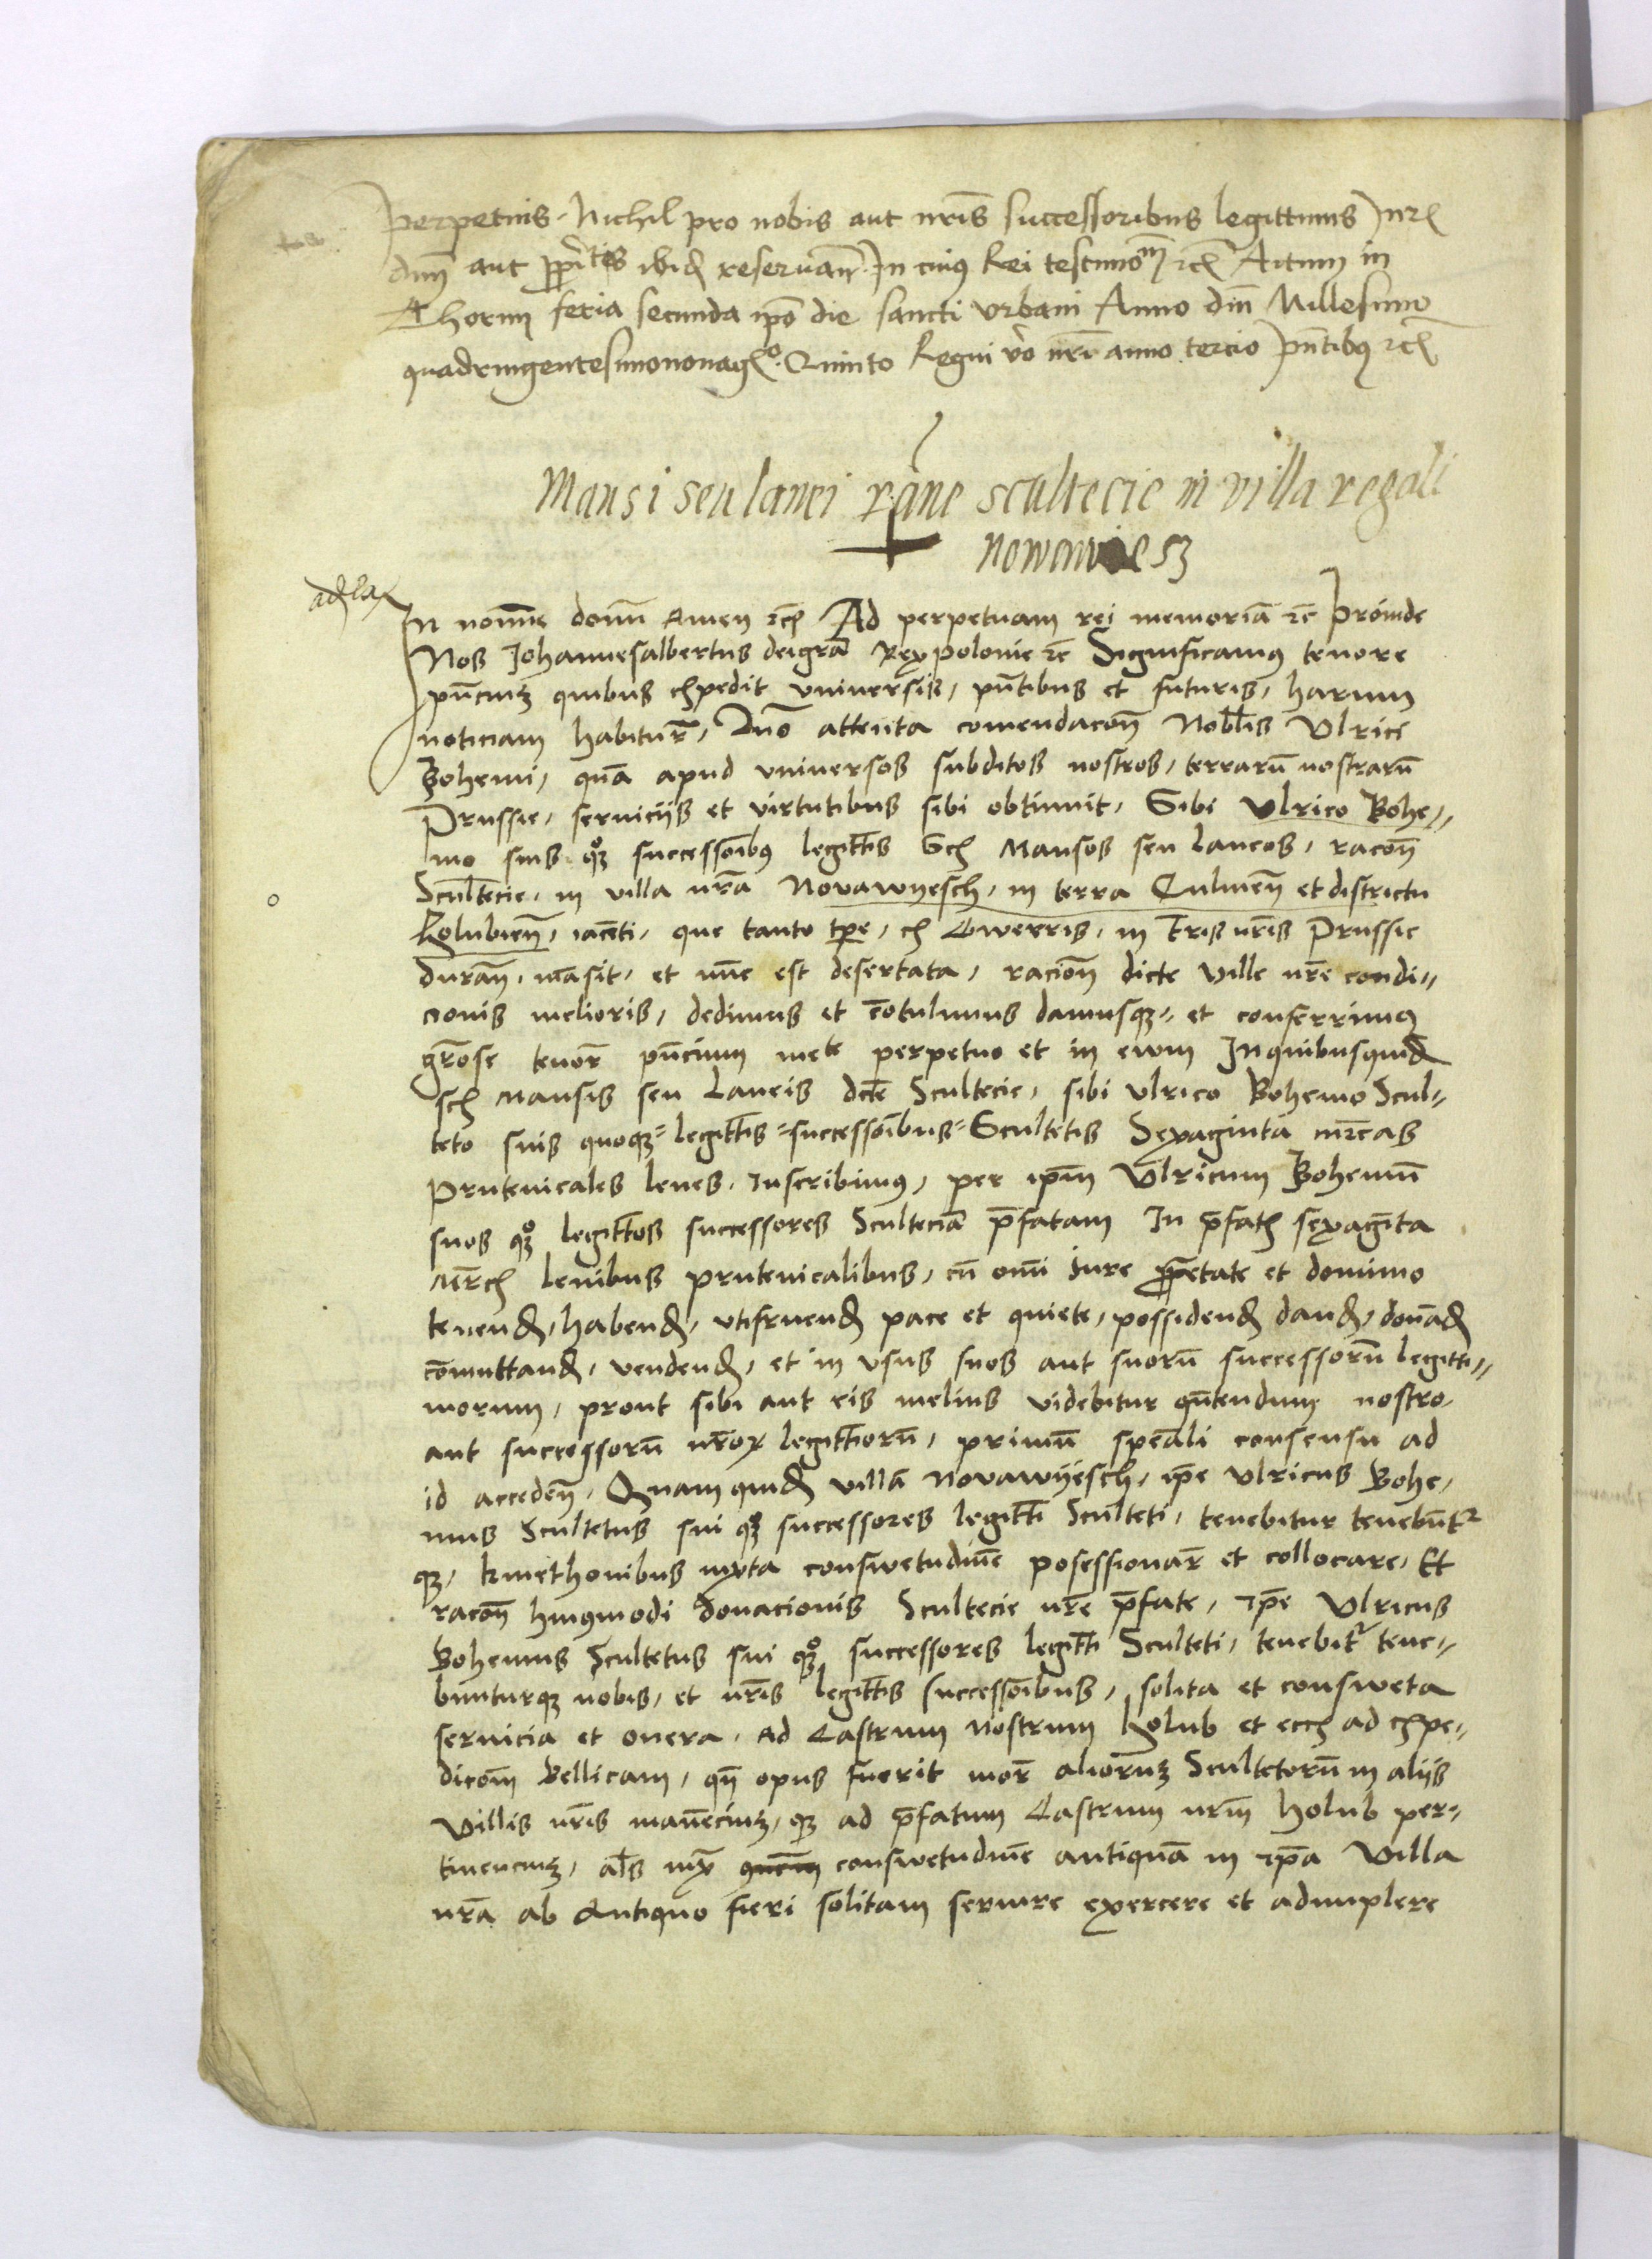 perpetuis. Nichil pro nobis aut nr̃is successoribus legittimis Jur̃
dnm̃ aut ꝓpr̃tes ibid̃ reseruan̄. In cuius Rei testimom̃ etc̃ Actum in
Thorun feria secunda ip̃o die sancti Vrbani Anno dnĩ Millesimo
quadringentesimononagẽo. Quinto Regni vo nr̃i anno tercio pñtibꝰ etc̃
Mansi seu lanei rãne scultecie in villa regali
In nomine domi Amen etc̃ Ad perpetuam rei memoriã etc̃ Proinde
Nos Johannesalbertus deigrã Rex polonie etc̃ Significamꝰ tenore
pñciuꝫ quibus expedit vniuersis, pñtibus et futuris, harum
noticiam habitur̃, Quo attenta comendacoñ Nobl̃is Vlrici
Bohemi, quã apud vniuersos subditos nostros, terrarũ nostrarũ
Prussie, seruiciis et virtutibus sibi obtinuit, Sibi Vlrico Bohe-
mo suis qꝫ successoribꝰ legitt̃is Sex Mansos seu Laneos, racoñ
Scultecie, in villa nr̃a Novawyesch, in terra Culmeñ et districtu
Golubieñ, iaceñti, que tanto tp̃e, ex Gwerris, in Tris nr̃is Prussie
durañ, mãsit, et nũc est desertata, racioñ dicte ville nr̃e condi-
cionis melioris, dedimus et cõtulimus damusqꝫ et conferrimꝰ
gr̃ose tenor̃ pñcium mete perpetuo et in ewm Inquibusquid̃
sex Mansis seu Laneis dc̃te Scultecie, sibi Vlrico Bohemo Scul-
teto suis quoqꝫ legitt̃is successoribus Scultetis Sexaginta mr̃cas
Prutenicales leues, Inscribimꝰ, per ip̃m Vlricum Bohemũ
suos qꝫ legitt̃os successores Sculteciã p̃fatam In p̃fatis sexagĩta
Mr̃cis leuibus prutenicalibus, cũ om̃i Jure ꝓpetate et dominio
tenend̃, habend̃, vtifruend̃ pace et quiete, possidend̃ dand̃, donãd̃
cõmuttand̃, vendend̃, et in vsus suos aut suorũ successorũ legitti-
morum, prout sibi aut eis melius videbitur qũtendum nostro
aut successorũ nr̃oꝝ legitt̃iorũ, primũ spẽali consensu ad
id accedeñ, Quam quid̃ villã Novawyesch, ip̃e Vlricus Bohe-
mus Scultetus sui qꝫ successores legitt̃i Sculteti, tenebitur tenebũtr
qꝫ, kmethonibus iuxta conswetudinẽ posessionar̃ et collocare, Et
racoñ huiꝰmodi donacionis Scultecie nr̃e p̃fate, ip̃e Vlricus
Bohemus Scultetus sui qꝫ successores legitt̃i Sculteti, tenebitr tene-
bunturqꝫ nobis, et nr̃is legitt̃is successoribus, solita et consweta
seruicia et onera, ad Castrum nostrum Golub et eciã ad expe-
dicoẽm bellicam, qñ opus fuerit mor̃ aliorum Scultetorũ in aliis
Villis nr̃is manẽciuꝫ, qꝫ ad p̃fatum Castrum nr̃m Holub per-
tinenciuꝫ, als̃ iuxͣ conswetudinẽ antiquã in ip̃a Villa
nr̃a ab Antiquo fieri solitam seruire exercere et adimplere